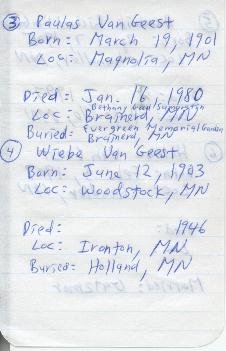 ③ Paulas Van Geest
Born: March 19, 1901
Loc: Magnolia, MN
Died: Jan. 16, 1980
Bethany Good
Loc: Brainerd, MN
Evergreen Memorial Garden
Buried: Brainerd, MN
④ Wiebe Van Geest
Born: June 12, 1903
Loc: Woodstock, MN
Died: 1946
Loc: Ironton, MN
Buried: Holland, MN